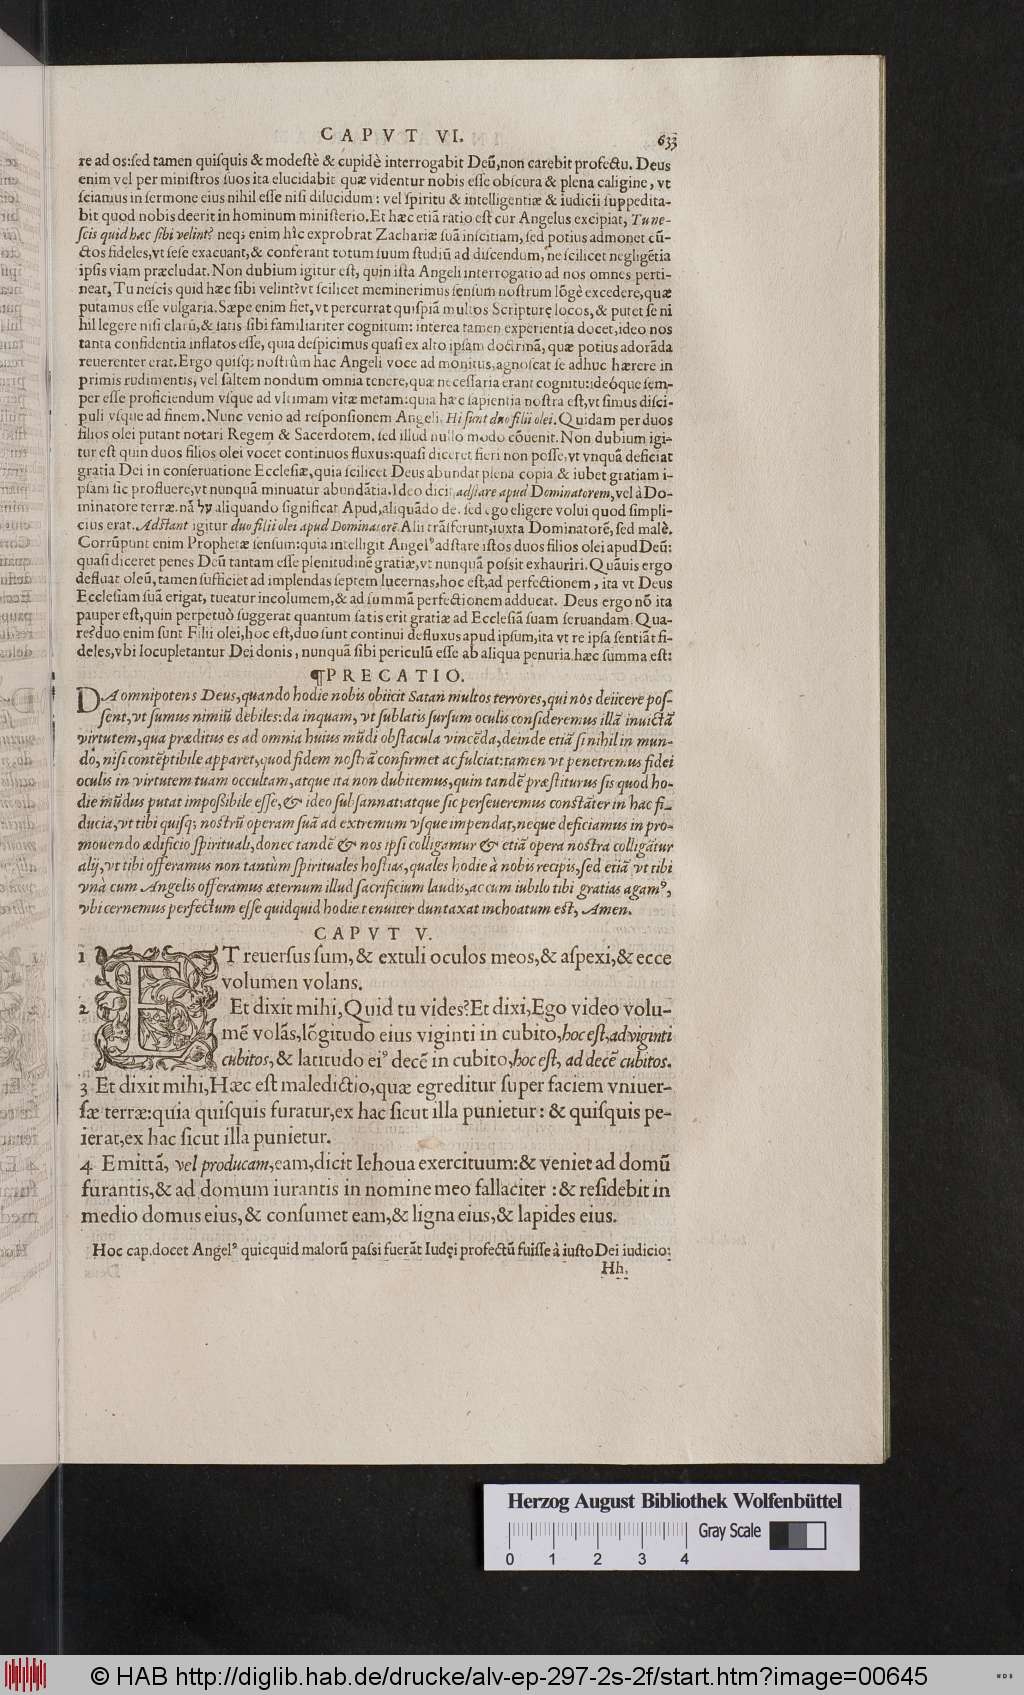 CAPVT VI. 633
re ad os:sed tamen quisquis & modestè & cupidè interrogabit Deũ,non carebit profectu. Deus
enim vel per ministros suos ita elucidabit quæ videntur nobis esse obscura & plena caligine, vt
sciamus in sermone eius nihil esse nisi dilucidum: vel spiritu & intelligentiæ & iudicii suppedita-
bit quod nobis deerit in hominum ministerio.Et hæc etiã ratio est cur Angelus excipiat, Tu ne-
scis quid hæc sibi velint? neq; enim hìc exprobrat Zachariæ suã inscitiam, sed potius admonet cũ-
ctos fideles,vt sese exacuant,& conferant totum suum studiũ ad discendum, ne scilicet negligẽtia
ipsis viam præcludat. Non dubium igitur est, quin ista Angeli interrogatio ad nos omnes perti-
neat, Tu nescis quid hæc sibi velint?vt scilicet meminerimus sensum nostrum lõgè excedere,quæ
putamus esse vulgaria. Sæpe enim fiet,vt percurrat quispiã multos Scripturę locos, & putet se ni
hil legere nisi clarũ,& satis sibi familiariter cognitum: interea tamen experientia docet,ideo nos
tanta confidentia inflatos esse, quia despicimus quasi ex alto ipsam doctrinã, quæ potius adorãda
reuerenter erat. Ergo quisq; nostrûm hac Angeli voce admonitus,agnoscat se adhuc hærere in
primis rudimentis, vel saltem nondum omnia tenere,quæ necessaria erant cognitu:ideóque sem-
per esse proficiendum vsque ad vltimam vitæ metam:quia hæc sapientia nostra est,vt simus disci-
puli vsque ad finem. Nunc venio ad responsionem Angeli, Hi sunt duo filii olei. Quidam per duos
filios olei putant notari Regem & Sacerdotem, sed illud nullo modo cõuenit. Non dubium igi-
tur est quin duos filios olei vocet continuos fluxus:quasi diceret fieri non posse,vt vnquã deficiat
gratia Dei in conseruatione Ecclesiæ,quia scilicet Deus abundat plena copia & iubet gratiam i-
psam sic profluere,vt nunquã minuatur abundãtia. Ideo dicit, adstare apud Dominatorem,vel à Do-
minatore terræ.nã על aliquando significat Apud,aliquãdo de. sed ego eligere volui quod simpli-
cius erat. Adstant igitur duo filii olei apud Dominatorẽ. Alii trãsferunt,iuxta Dominatorẽ, sed malè.
Corrũpunt enim Prophetæ sensum:quia intelligit Angelꝰ adstare istos duos filios olei apud Deũ:
quasi diceret penes Deũ tantam esse plenitudinẽ gratiæ,vt nunquã possit exhauriri. Quãuis ergo
defluat oleũ,tamen sufficiet ad implendas septem lucernas,hoc est,ad perfectionem , ita vt Deus
Ecclesiam suã erigat, tueatur incolumem,& ad summã perfectionem adducat. Deus ergo nõ ita
pauper est,quin perpetuò suggerat quantum satis erit gratiæ ad Ecclesiã suam seruandam. Qua-
re?duo enim sunt Filii olei,hoc est,duo sunt continui defluxus apud ipsum,ita vt re ipsa sentiãt fi-
deles,vbi locupletantur Dei donis , nunquã sibi periculũ esse ab aliqua penuria.hæc summa est:
¶PRECATIO.
DA omnipotens Deus,quando hodie nobis obiicit Satan multos terrores,qui nos deiicere pos-
sent,vt sumus nimiũ debiles:da inquam, vt sublatis sursum oculis consideremus illã inuictã
virtutem,qua præditus es ad omnia huius mũdi obstacula vincẽda,deinde etiã si nihil in mun-
do, nisi contẽptibile apparet,quod fidem nostrã confirmet ac fulciat:tamen vt penetremus fidei
oculis in virtutem tuam occultam,atque ita non dubitemus,quin tandẽ præstiturus sis quod ho-
die mũdus putat impoßibile esse,& ideo subsannat:atque sic perseueremus constãter in hac fi-
ducia,vt tibi quisq; nostrũ operam suã ad extremum vsque impendat,neque deficiamus in pro-
mouendo ædificio spirituali,donec tandẽ & nos ipsi colligamur & etiã opera nostra colligãtur
alij,vt tibi offeramus non tantùm spirituales hostias,quales hodie à nobis recipis,sed etiã vt tibi
vnà cum Angelis offeramus æternum illud sacrificium laudis,ac cum iubilo tibi gratias agamꝰ,
vbi cernemus perfectum esse quidquid hodie tenuiter duntaxat inchoatum est, Amen.
CAPVT V.
1 ET reuersus sum,& extuli oculos meos,& aspexi,& ecce
volumen volans.
2 Et dixit mihi,Quid tu vides?Et dixi,Ego video volu-
mẽ volãs,lõgitudo eius viginti in cubito,hoc est,ad viginti
cubitos,& latitudo eiꝰ decẽ in cubito,hoc est, ad decẽ cubitos.
3 Et dixit mihi,Hæc est maledictio,quæ egreditur super faciem vniuer-
sæ terræ:quia quisquis furatur,ex hac sicut illa punietur: & quisquis pe-
ierat,ex hac sicut illa punietur.
4 Emittã, vel producam,eam,dicit Iehoua exercituum:& veniet ad domũ
furantis,& ad domum iurantis in nomine meo fallaciter :& residebit in
medio domus eius,& consumet eam,& ligna eius,& lapides eius.
Hoc cap.docet Angelꝰ quicquid malorũ passi fuerãt Iudęi profectũ fuisse à iusto Dei iudicio:
Hh.
Herzog August Bibliothek Wolfenbüttel
Gray Scale
0 1 2 3 4
© HAB http://diglib.hab.de/drucke/alv-ep-297-2s-2f/start.htm?image=00645